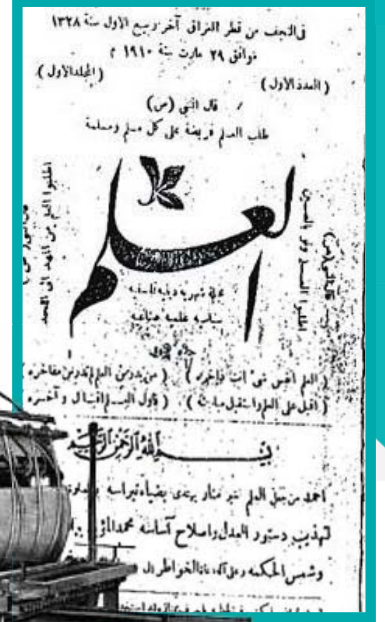 في النجف من قطر العراق آخر ربيع الاول سنة ١٣٢٨
موافق ٢٩ مارت سنة ١٩١٠ م
( العدد الاول ) ( المجلد الاول )
قال النبي (ص)
طلب العلم فريضة على كل مسلم ومسلمة
العلم
قال النبي (ص)
اطلبوا العلم ولو بالصين
اطلبوا العلم من المهد الى اللحد
مجلة شهرية دينية فلسفية
سياسية علمية صناعية
( العلم انفس شئ انت ذاخره ) ( من يدرس العلم لم تدرس مفاخره )
( اقبل على العلم واستقبل مباحثه ) ( فاول العلم اقبال وآخره )
بسم الله الرحمن الرحيم
احمد من جعل العلم خير منار يهتدى بضياء نبراسه
تهذيب دستور العدل واصلاح آساسه محمد
وشمس الحكمة وعلى آله